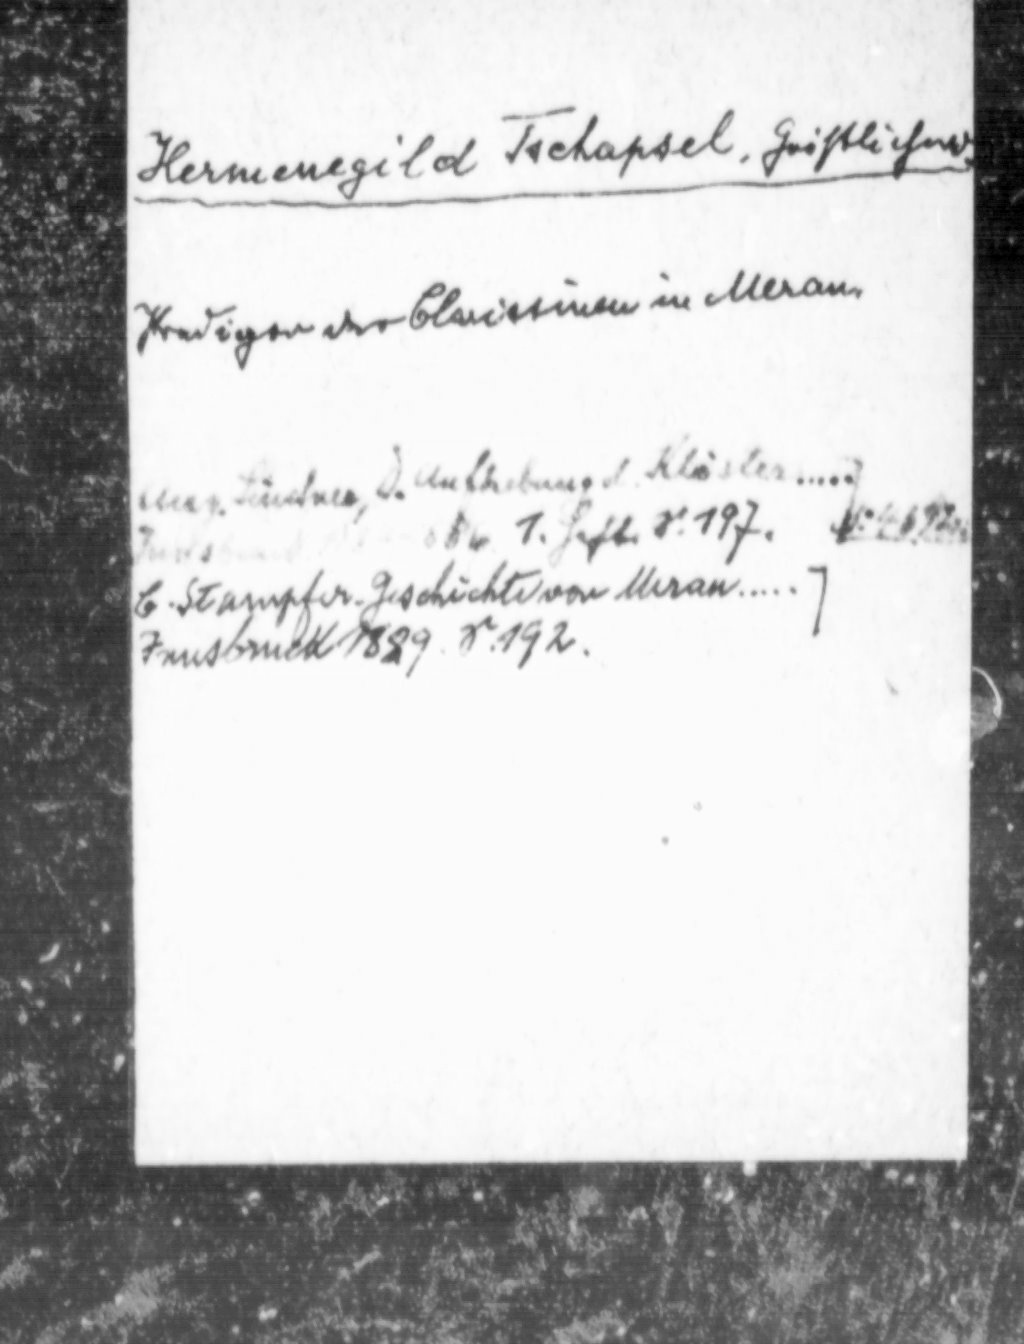 Hermenegild Tschapsel, Geistlicher.
Prediger der Clarissinen in Meran.
Aug. Lindner, D. Aufhebung d. Klöster.....]
Innsbruck 1. Heft. S. 197.
C. Stampfer. Geschichte von Meran.....]
Innsbruck 1889. S. 192.